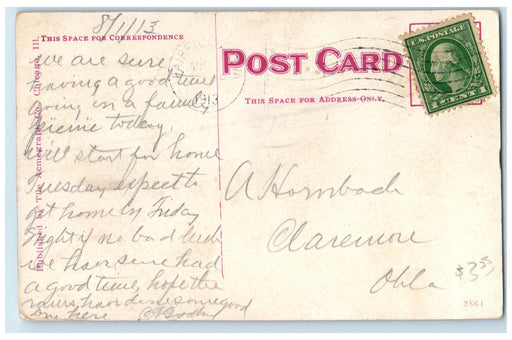 8/1/13
THIS SPACE FOR CORRESPONDENCE
we are sure
having a good time
going in a family
picnic today,
will start for home
Tuesday expect to
get home by Friday
night if no bad luck
we have sure had
a good time, hope the
rains have done some good
down here
POST CARD
THIS SPACE FOR ADDRESS-ONLY.
1913
U.S. POSTAGE
1 CENT 1
A Hornbach
Claremore
Okla
$3.55
2864
Published by The Acmegraph Co., Chicago, Ill.